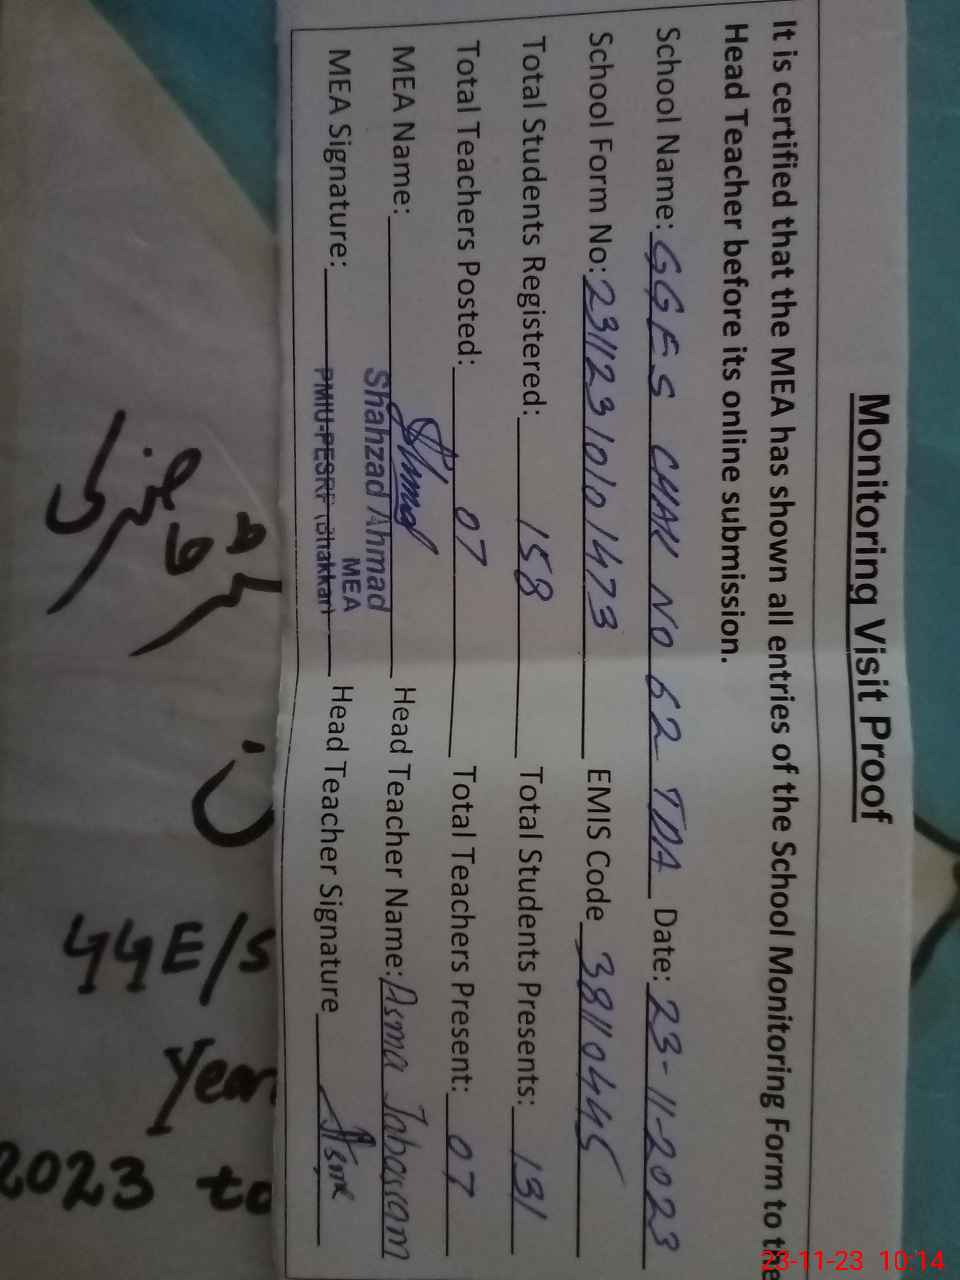 Monitoring Visit Proof
It is certified that the MEA has shown all entries of the School Monitoring Form to the
Head Teacher before its online submission.
School Name: GGES CHAK NO 62 TDA Date: 23-11-2023
School Form No: 23112310101473 EMIS Code 38110445
Total Students Registered: 158 Total Students Presents: 131
Total Teachers Posted: 07 Total Teachers Present: 07
MEA Name: Ahmad Head Teacher Name: Asma Tabassam
Shahzad Ahmad
MEA
MEA Signature: PMIU-PESRP (Bhakkar) Head Teacher Signature Asma
GGE/S
Year
2023 to
23-11-23 10:14